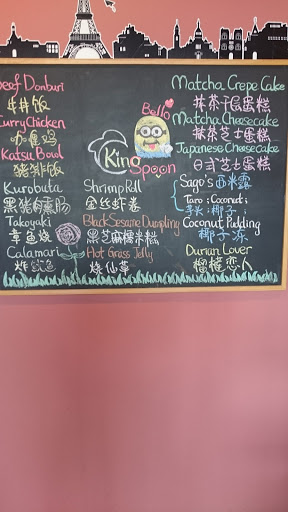 Beef Donburi
牛丼饭
Curry Chicken
咖喱鸡
Katsu Bowl
猪排饭
Kurobuta
黑猪肉香肠
Takoyaki
章鱼烧
Calamari
炸鱿鱼
Bello
King
Spoon
Shrimp Roll
金丝虾卷
Black Sesame Dumpling
黑芝麻糯米糕
Hot Grass Jelly
烧仙草
Matcha Crepe Cake
抹茶千层蛋糕
Matcha Cheesecake
抹茶芝士蛋糕
Japanese Cheesecake
日式芝士蛋糕
Sago's 西米露
Taro; Coconut;
芋头; 椰子
Coconut Pudding
椰子冻
Durian Lover
榴槤恋人